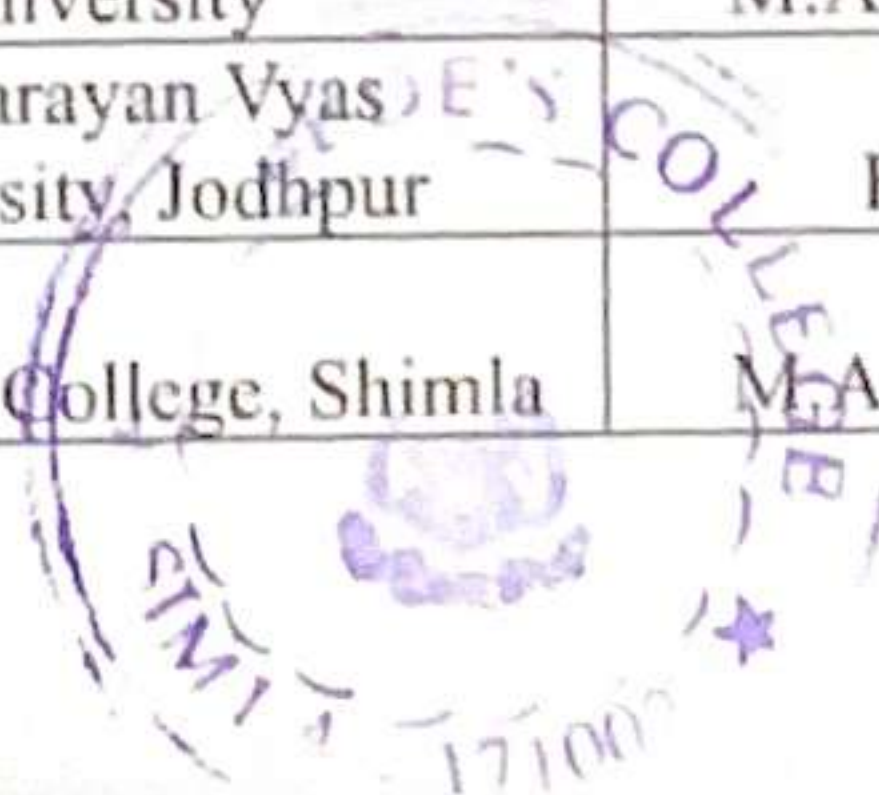 niversity M.A
arayan Vyas
sity, Jodhpur
College, Shimla M.A
COLLEGE